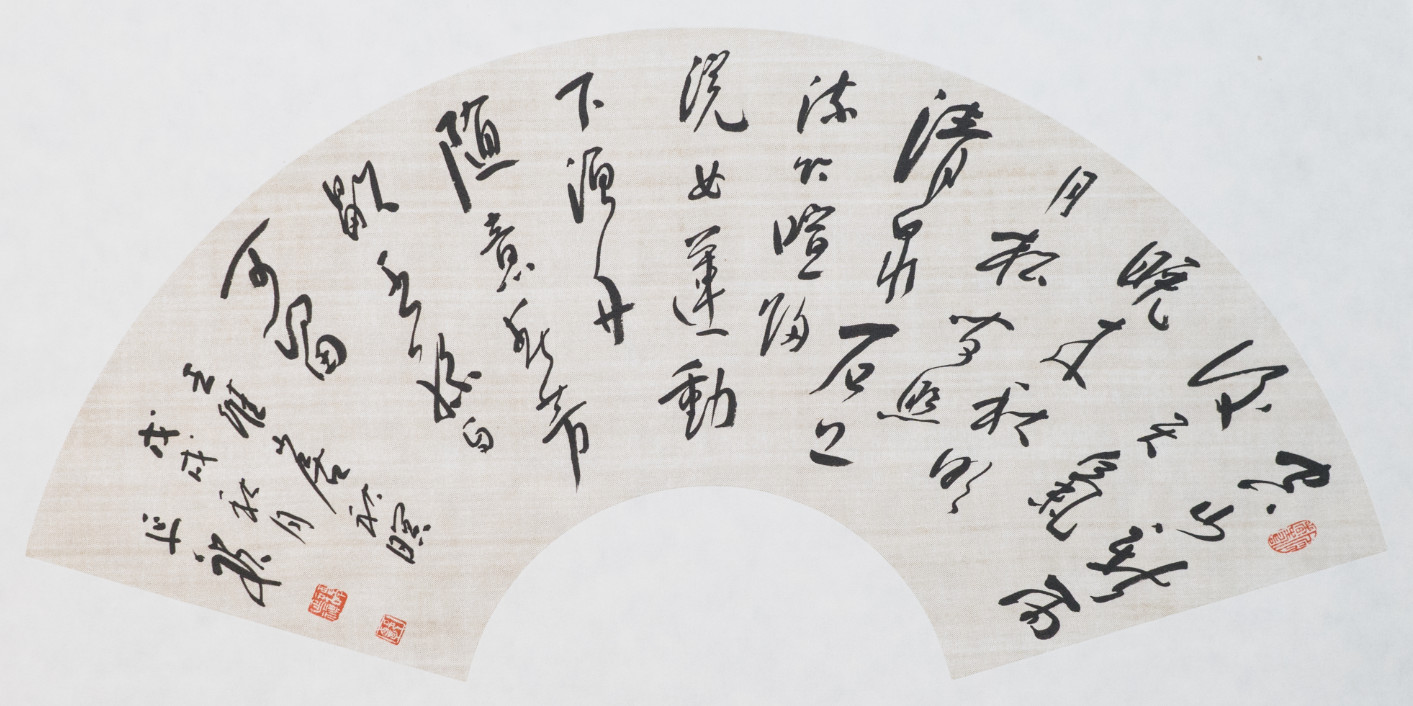 空山新雨
後天氣
晚来秋明
月松间照
清泉石上
流竹喧歸
浣女蓮動
下漁舟
隨意春芳
歇王孫自
可留
王維山居秋暝
戊戌秋月